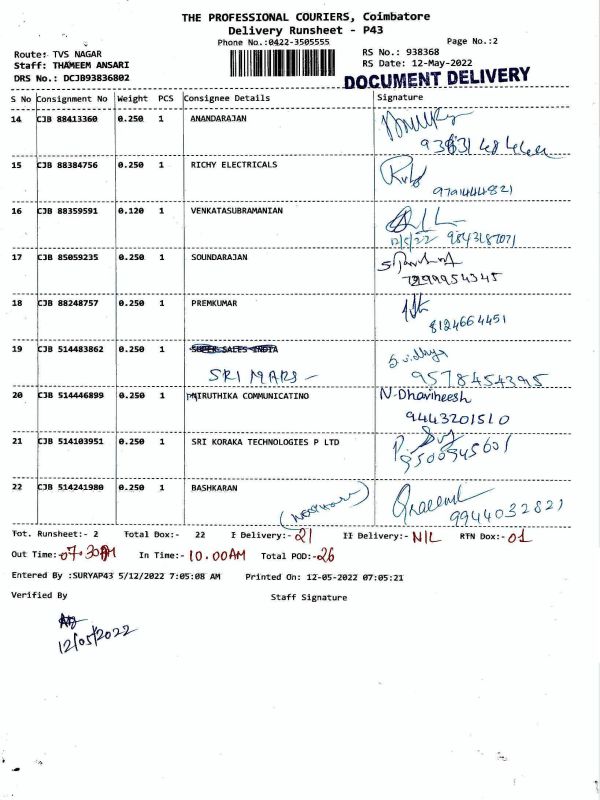 THE PROFESSIONAL COURIERS, Coimbatore
Delivery Runsheet - P43
Phone No.:0422-3505555 Page No.:2
Route: TVS NAGAR RS No.: 938368
Staff: THAMEEM ANSARI RS Date: 12-May-2022
DRS No.: DCJB93836802 DOCUMENT DELIVERY
S No Consignment No Weight PCS Consignee Details Signature
14 CJB 88413360 0.250 1 ANANDARAJAN
15 CJB 88384756 0.250 1 RICHY ELECTRICALS
9791444821
16 CJB 88359591 0.120 1 VENKATASUBRAMANIAN
12/5/22 9843187071
17 CJB 85059235 0.250 1 SOUNDARAJAN
7299954345
18 CJB 88248757 0.250 1 PREMKUMAR
8124664451
19 CJB 514483862 0.250 1 SUPER SALES INDIA
SRI MARS - 9578454395
20 CJB 514446899 0.250 1 NIRUTHIKA COMMUNICATINO N. Dhaviheesh
9443201510
21 CJB 514103951 0.250 1 SRI KORAKA TECHNOLOGIES P LTD
9500945601
22 CJB 514241980 0.250 1 BASHKARAN
9944032821
Tot. Runsheet:- 2 Total Dox:- 22 I Delivery:- 21 II Delivery:- NIL RTN Dox:- 01
Out Time:- 07.30AM In Time:- 10.00AM Total POD:- 26
Entered By :SURYAP43 5/12/2022 7:05:08 AM Printed On: 12-05-2022 07:05:21
Verified By Staff Signature
12/05/2022